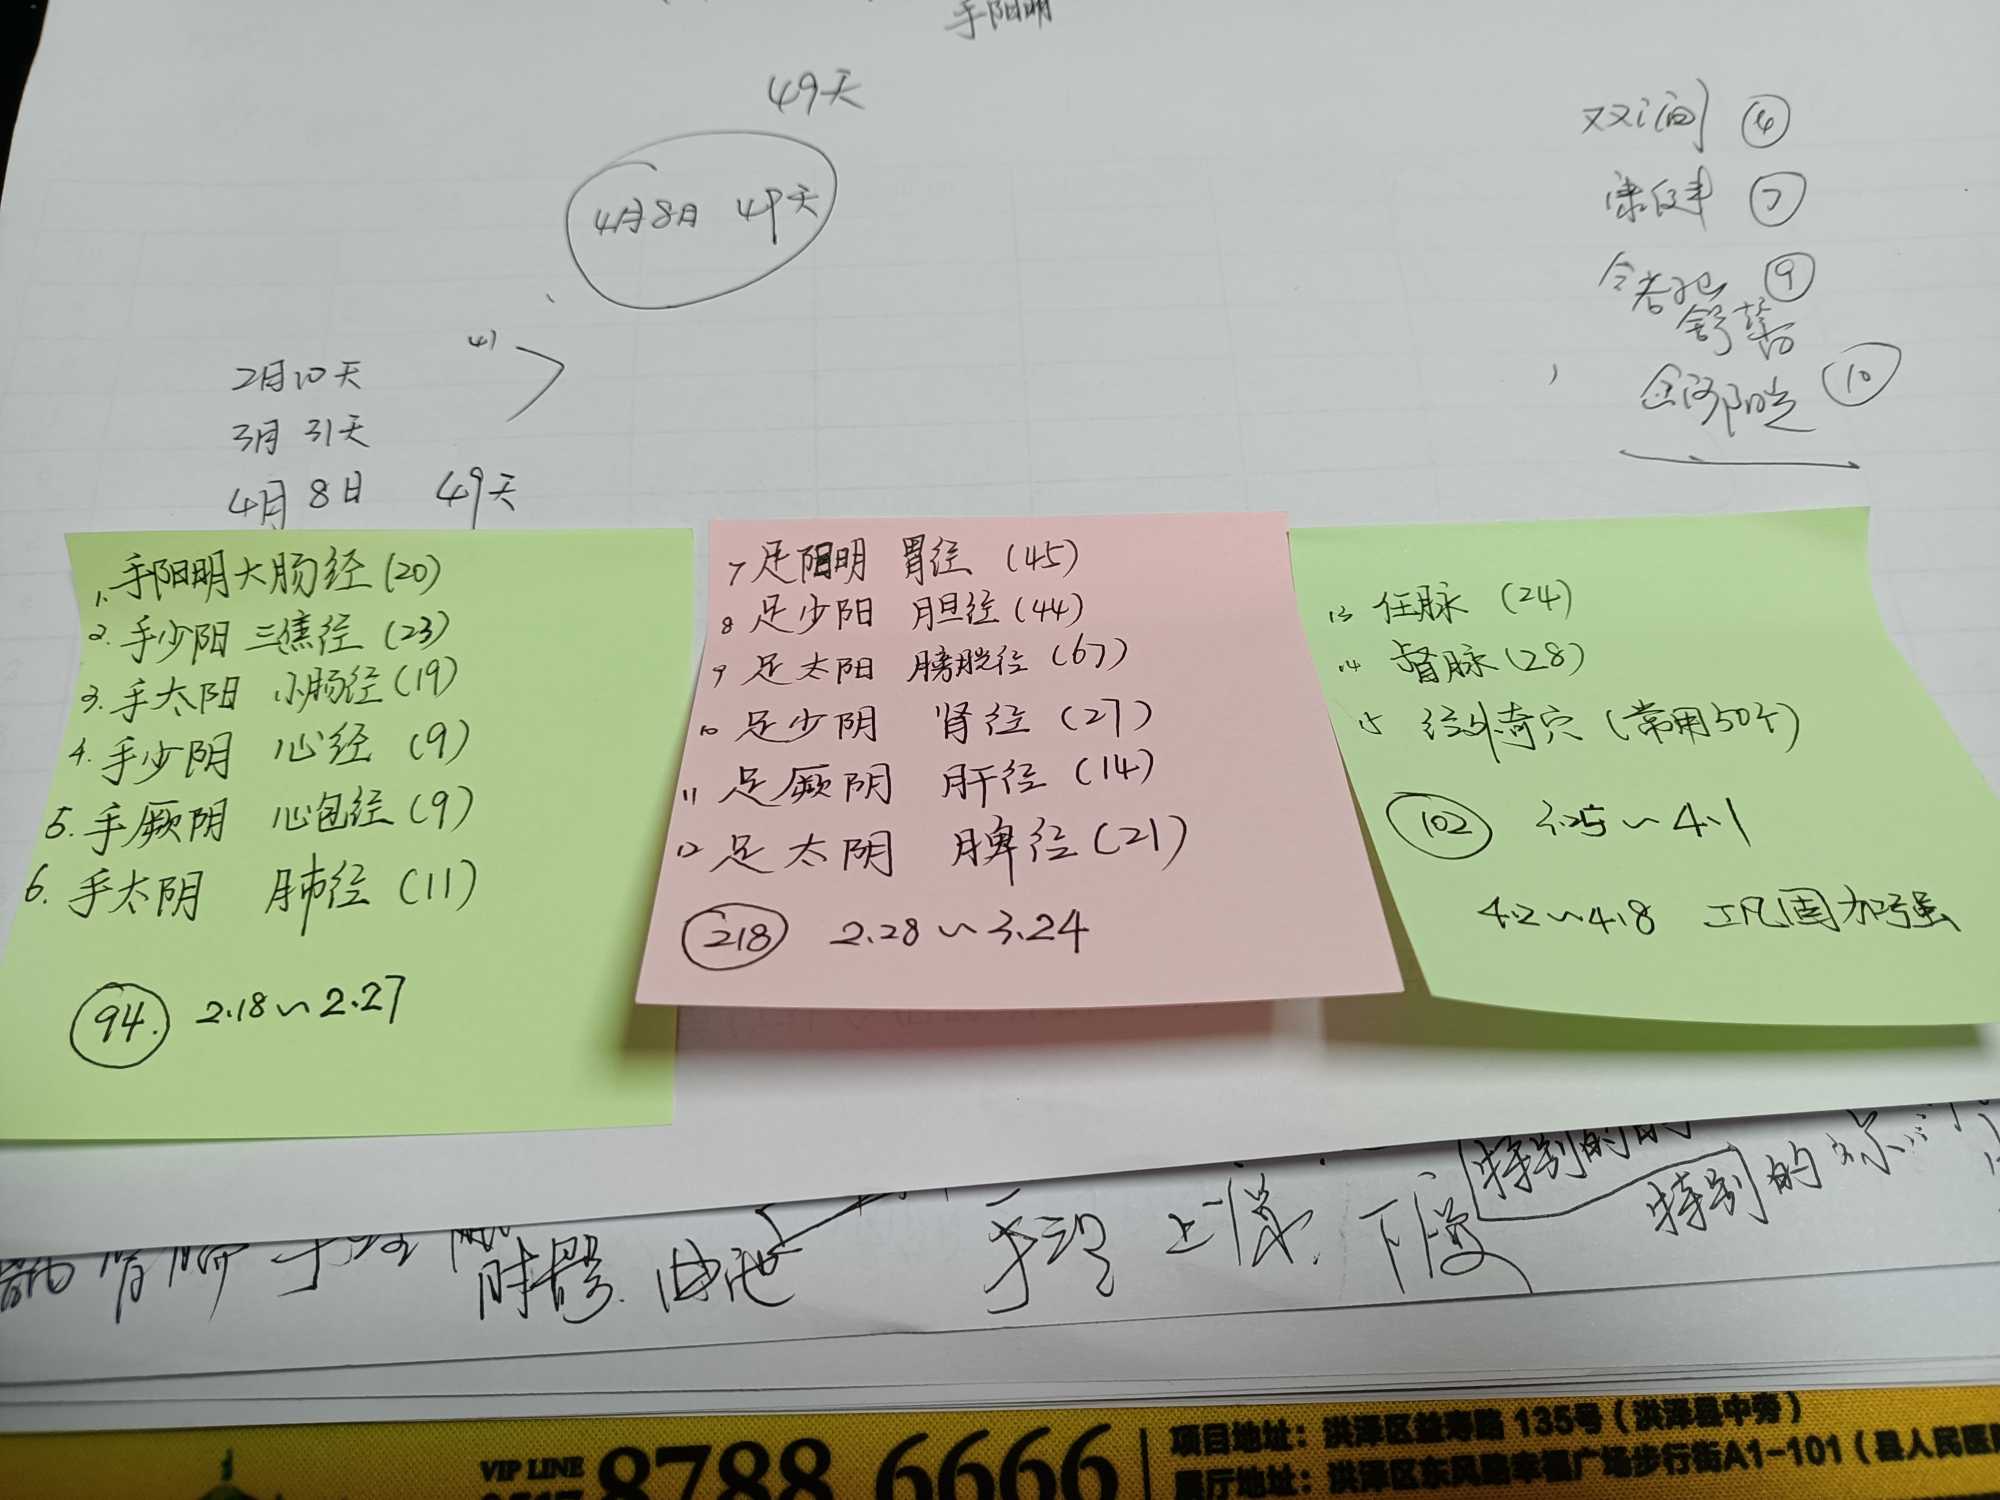 手阳明
49天
4月8日 49天
41
2月10天
3月31天
4月8日 49天
④
康健 ⑦
⑨
⑩
1. 手阳明大肠经(20)
2. 手少阳 三焦经(23)
3. 手太阳 小肠经(19)
4. 手少阴 心经(9)
5. 手厥阴 心包经(9)
6. 手太阴 肺经(11)
94. 2.18~2.27
7 足阳明 胃经(45)
8 足少阳 胆经(44)
9 足太阳 膀胱经(67)
10 足少阴 肾经(27)
11 足厥阴 肝经(14)
12 足太阴 脾经(21)
218 2.28~3.24
13 任脉(24)
14 督脉(28)
15 经外奇穴(常用50个)
102 3.25~4.1
4.2~4.8 巩固加强
特别的
特别的
肘髎. 曲池
手 上 下
VIP LINE
8788 6666
项目地址：洪泽区益寿路 135号（洪泽县中旁）
展厅地址：洪泽区东风路幸福广场步行街A1-101（县人民医